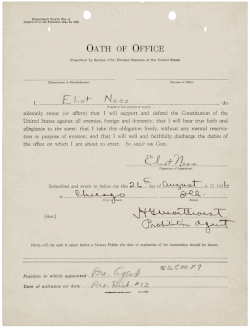 OATH OF OFFICE
Prescribed by Section 1757, Revised Statutes of the United States
(Department or Establishment)
I, Eliot Ness, do
solemnly swear (or affirm) that I will support and defend the Constitution of the
United States against all enemies, foreign and domestic; that I will bear true faith and
allegiance to the same; that I take this obligation freely, without any mental reserva-
tion or purpose of evasion; and that I will well and faithfully discharge the duties of
the office on which I am about to enter. SO HELP ME GOD.
Eliot Ness
(Signature of appointee)
Subscribed and sworn to before me this 26 day of August A. D. 1926
at Chicago Ill
[SEAL]
Prohibition Agent
NOTE.—If the oath is taken before a Notary Public the date of expiration of his commission should be shown.
Position to which appointed Pro. Agent
Date of entrance on duty